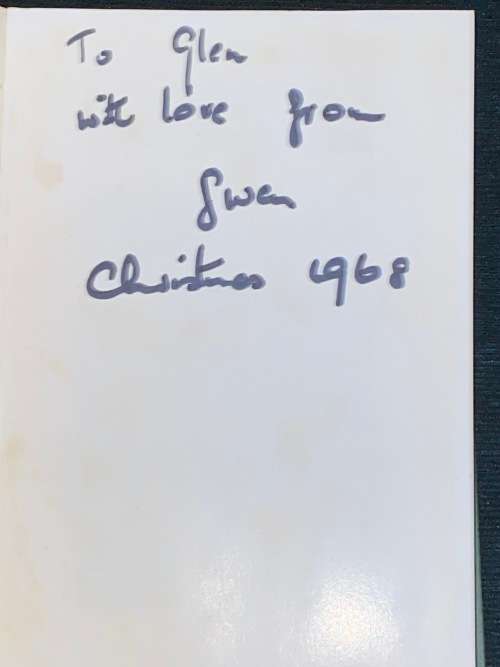 To Glen
with love from
Gwen
Christmas 1968